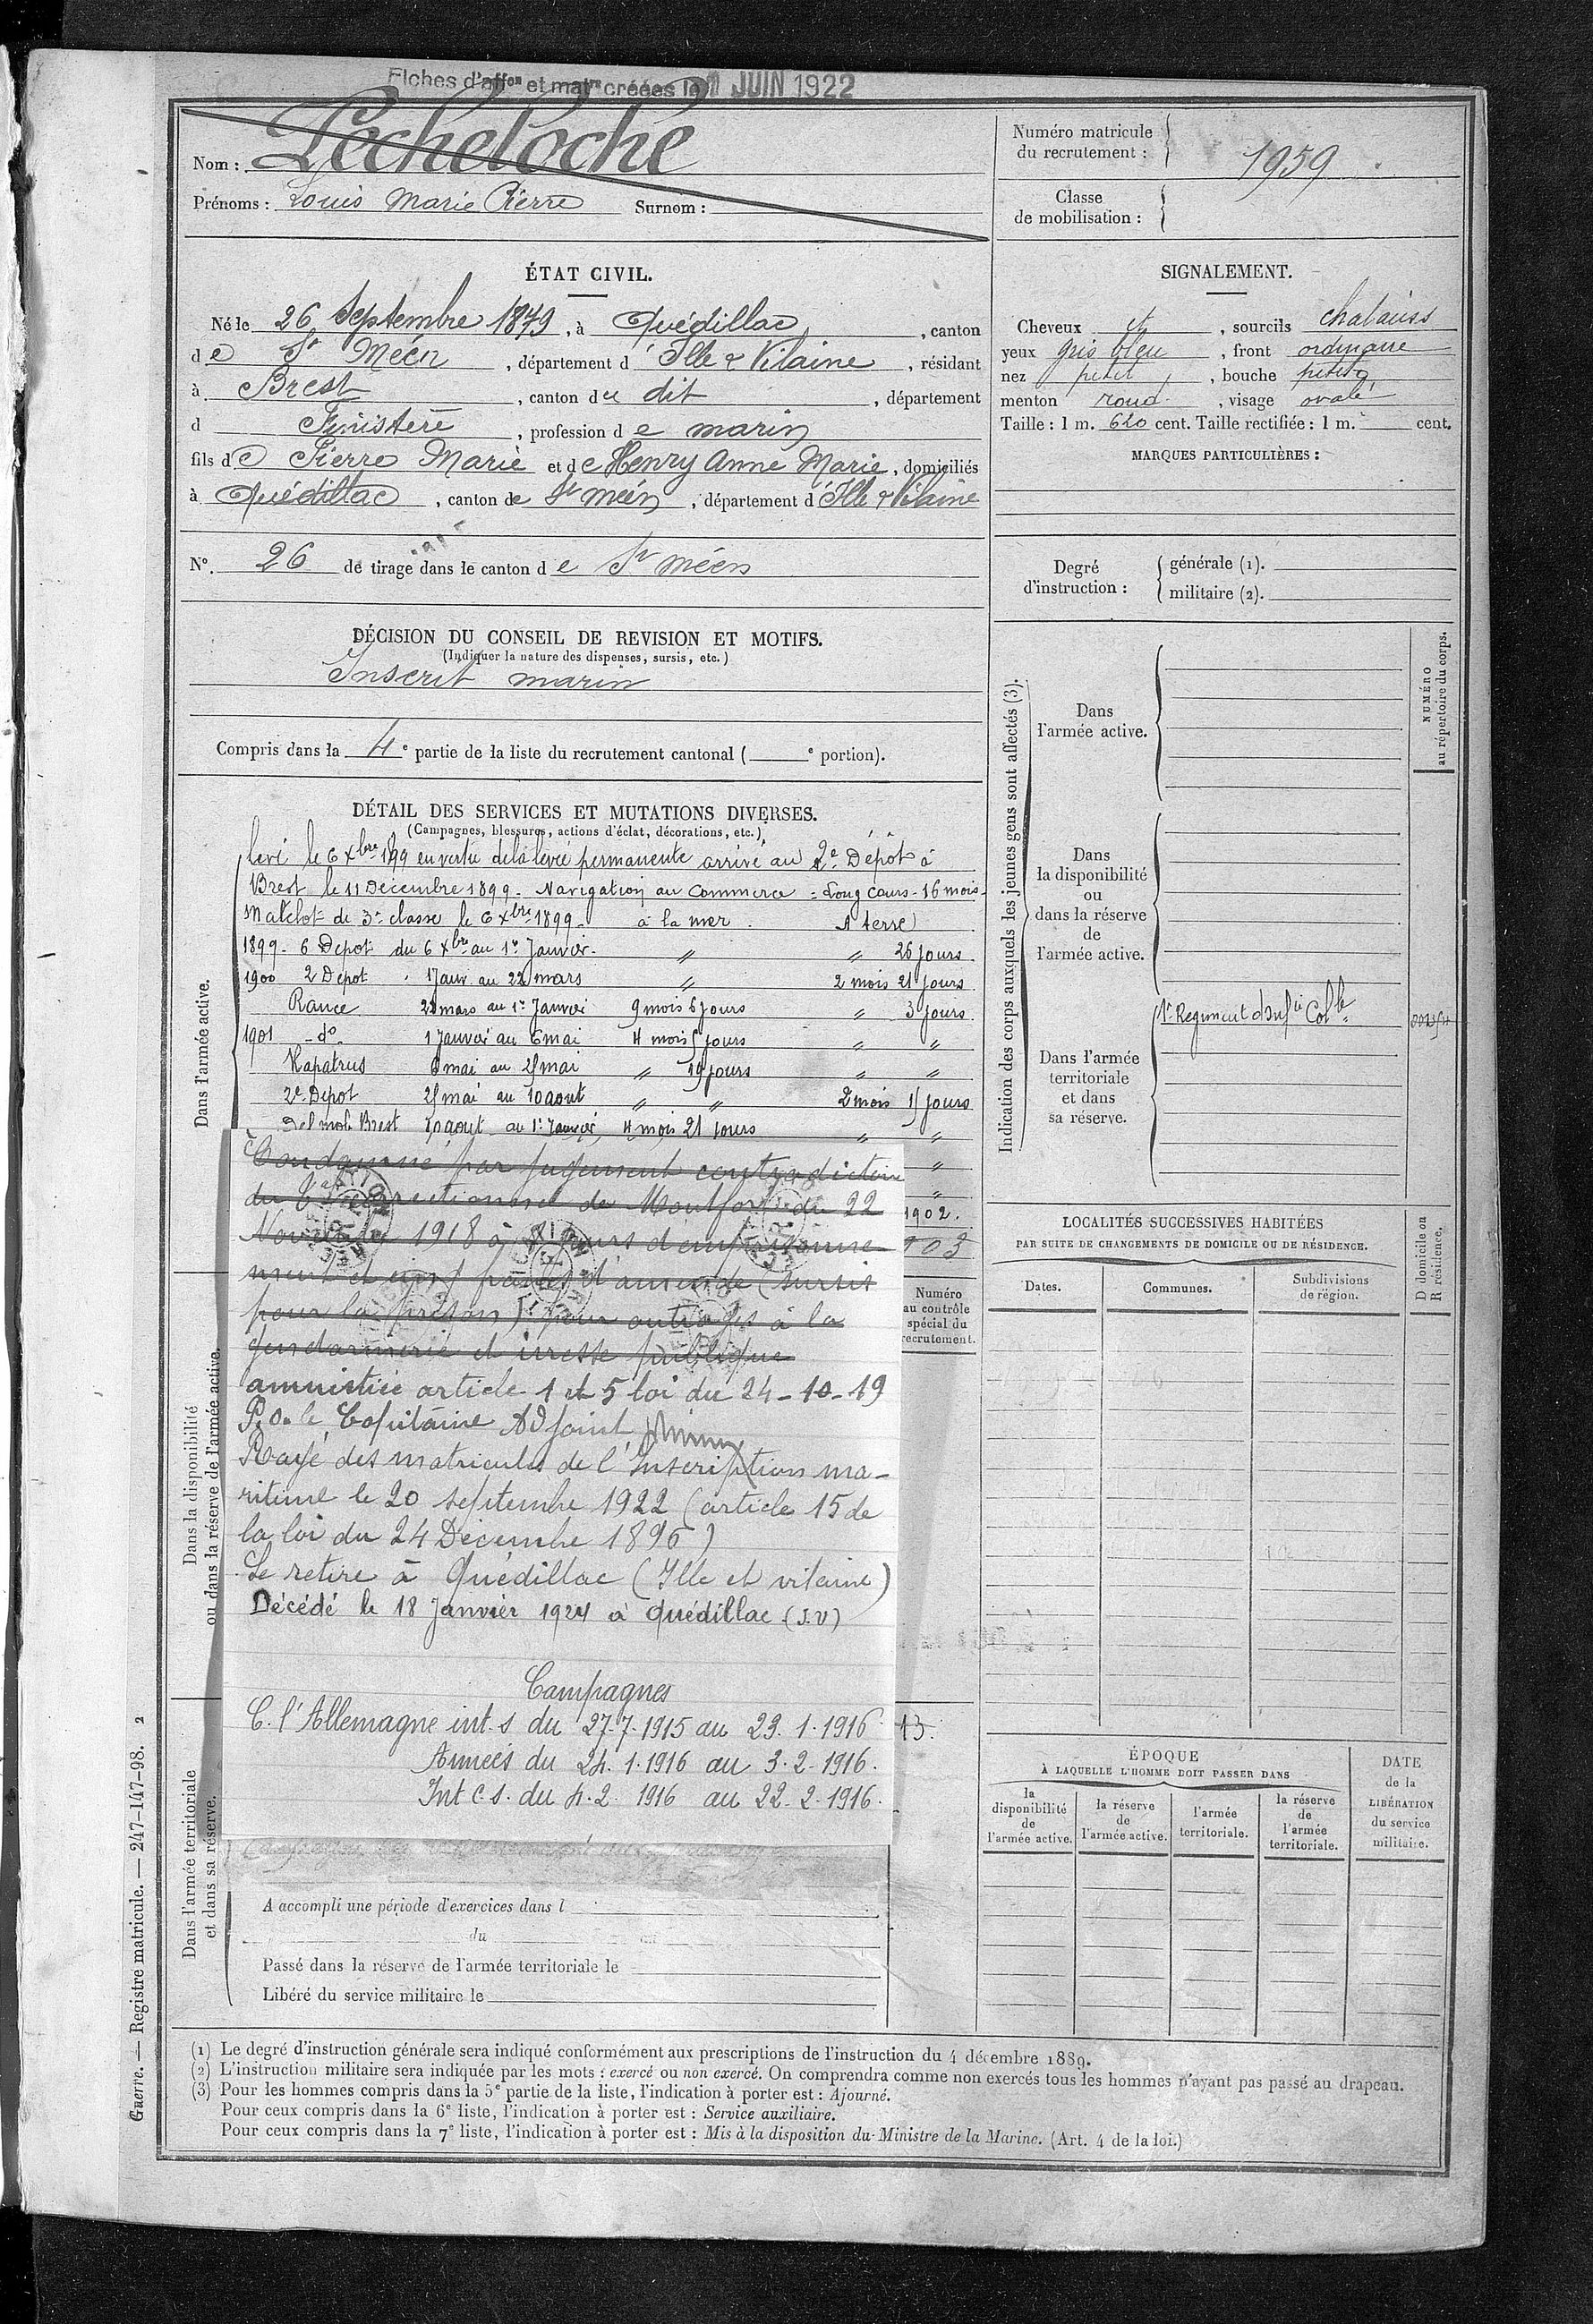 Fiches d'affon et matre créées le 1 JUIN 1922
Nom : Pecheloche
Prénoms : Louis Marie Pierre Surnom :
Numéro matricule du recrutement : 1959
Classe de mobilisation :
ÉTAT CIVIL.
Né le 26 Septembre 1879, à Quédillac, canton
de St Méen, département d'Ille & Vilaine, résidant
à Brest, canton du dit, département
d Finistère, profession de marin
fils de Pierre Marie et de Henry Anne Marie, domiciliés
à Quédillac, canton de St méen, département d'Ille & Vilaine
N° 26 de tirage dans le canton de St méen
SIGNALEMENT.
Cheveux et, sourcils chatains
yeux gris bleu, front ordinaire
nez petit, bouche petite
menton rond, visage ovale
Taille : 1 m. 620 cent. Taille rectifiée : 1 m. cent.
MARQUES PARTICULIÈRES :
Degré d'instruction : générale (1).
militaire (2).
DÉCISION DU CONSEIL DE REVISION ET MOTIFS.
(Indiquer la nature des dispenses, sursis, etc.)
Inscrit marin
Compris dans la 4e partie de la liste du recrutement cantonal ( e portion).
DÉTAIL DES SERVICES ET MUTATIONS DIVERSES.
(Campagnes, blessures, actions d'éclat, décorations, etc.)
Dans l'armée active.
levé le 6 Xbre 1899 en vertu de la levée permanente arrivé au 2e Dépôt à
Brest le 11 Décembre 1899 - Navigation au Commerce = Long Cours - 16 mois -
Matelot de 3e classe le 6 Xbre 1899 - à la mer. A terre
1899 - 6 Depot du 6 Xbre au 1er Janvier - " " 26 jours
1900 2 Depot 1 Janv. au 22 mars " 2 mois 21 jours
Rance 22 mars au 1er Janvier 9 mois 6 jours " 3 jours
1901 - do - 1 Janvier au 6 mai 4 mois 5 jours " "
6 mai au 25 mai " 19 jours " "
2e Dépot 25 mai au 10 aout " " 2 mois 15 jours
Def mob. Brest 10 aout au 1er Janvier 4 mois 21 jours " "
"
"
1902.
903
Condamné par jugement contradictoire
du Tal Correctionnel de Montfort du 22
Novembre 1918 à jours d'emprisonne-
ment et cinq francs d'amende (sursis
pour la prison) pour outrages à la
gendarmerie et ivresse publique
amnistiée article 1 et 5 loi du 24-10-19
P.O. le Capitaine Adjoint
Rayé des matricules de l'Inscription ma-
ritime le 20 septembre 1922 (article 15 de
la loi du 24 Décembre 1896)
Se retire à Quédillac (Ille et vilaine)
Décédé le 18 Janvier 1924 à Quédillac (I.V)
Campagnes
C. l'Allemagne int. s du 27-7-1915 au 23.1.1916
Armées du 24.1.1916 au 3.2.1916.
Int C s. du 4.2.1916 au 22.2.1916.
13.
Numéro au contrôle spécial du recrutement.
Dans la disponibilité
ou dans la réserve de l'armée active.
Dans l'armée territoriale
et dans sa réserve.
A accompli une période d'exercices dans l
du au
Passé dans la réserve de l'armée territoriale le
Libéré du service militaire le
Indication des corps auxquels les jeunes gens sont affectés (3).
NUMÉRO
au répertoire du corps.
Dans
l'armée active.
Dans
la disponibilité
ou
dans la réserve
de
l'armée active.
Dans l'armée
territoriale
et dans
sa réserve.
1er Regiment d'Infie Colle
LOCALITÉS SUCCESSIVES HABITÉES
PAR SUITE DE CHANGEMENTS DE DOMICILE OU DE RÉSIDENCE.
D domicile ou
R résidence.
Dates. Communes. Subdivisions de région.
ÉPOQUE
À LAQUELLE L'HOMME DOIT PASSER DANS
la disponibilité de l'armée active.
la réserve de l'armée active.
l'armée territoriale.
la réserve de l'armée territoriale.
DATE
de la
LIBÉRATION
du service
militaire.
(1) Le degré d'instruction générale sera indiqué conformément aux prescriptions de l'instruction du 4 décembre 1889.
(2) L'instruction militaire sera indiquée par les mots : exercé ou non exercé. On comprendra comme non exercés tous les hommes n'ayant pas passé au drapeau.
(3) Pour les hommes compris dans la 5e partie de la liste, l'indication à porter est : Ajourné.
Pour ceux compris dans la 6e liste, l'indication à porter est : Service auxiliaire.
Pour ceux compris dans la 7e liste, l'indication à porter est : Mis à la disposition du Ministre de la Marine. (Art. 4 de la loi.)
Guerre. — Registre matricule. — 247-147-98. 2